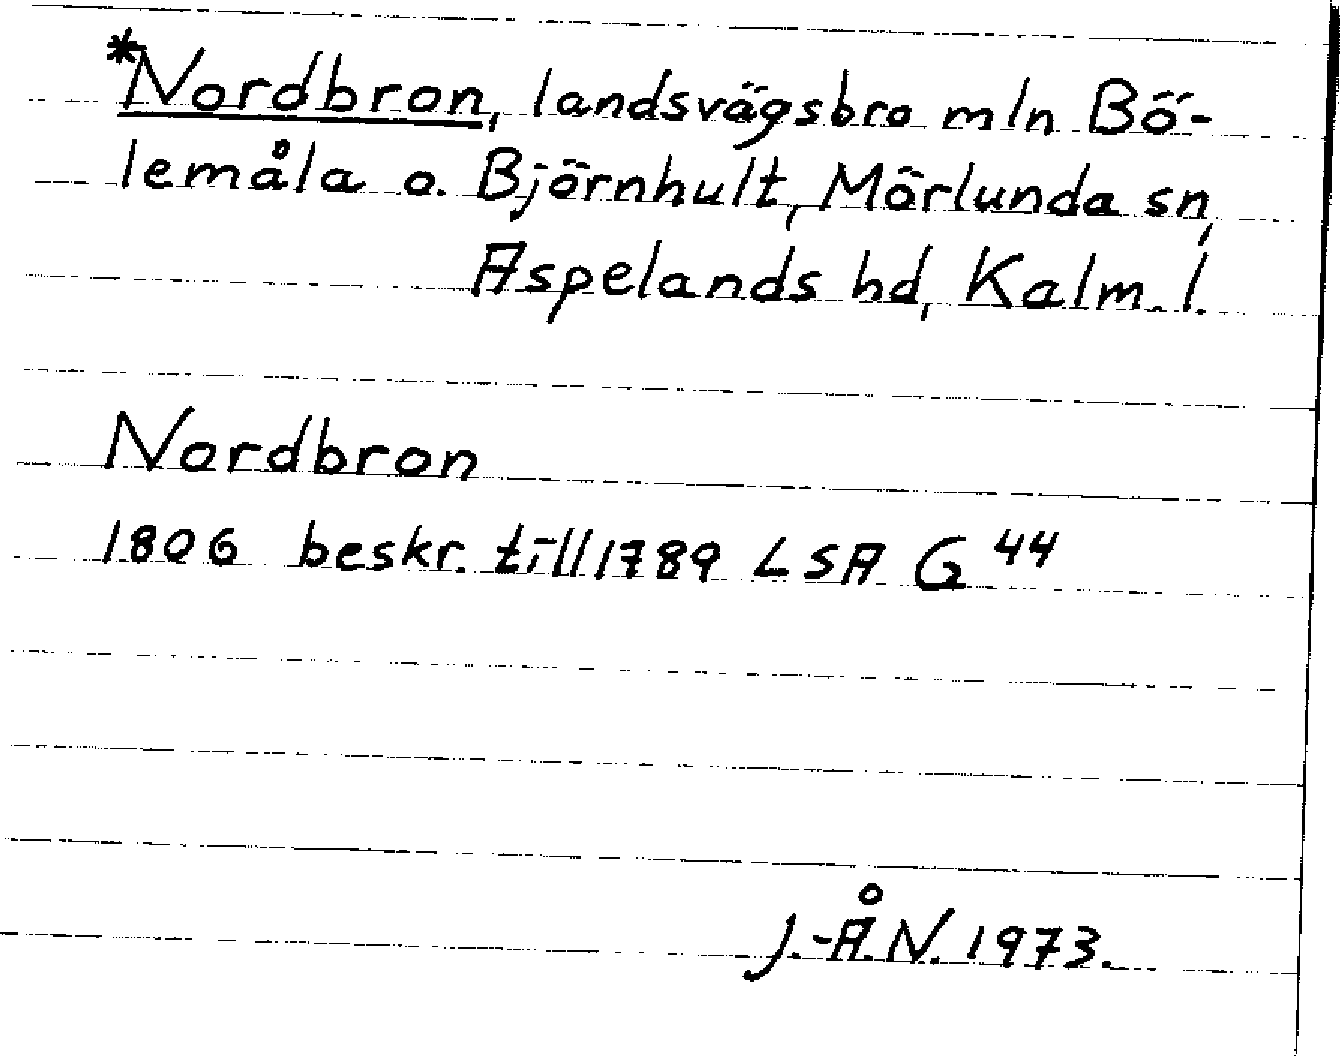 *Nordbron, landsvägsbro mln Bö-
lemåla o. Björnhult, Mörlunda sn,
Aspelands hd, Kalm. l.
Nordbron
1806 beskr. till 1789 LSA G 44
J.-Å.N. 1973.